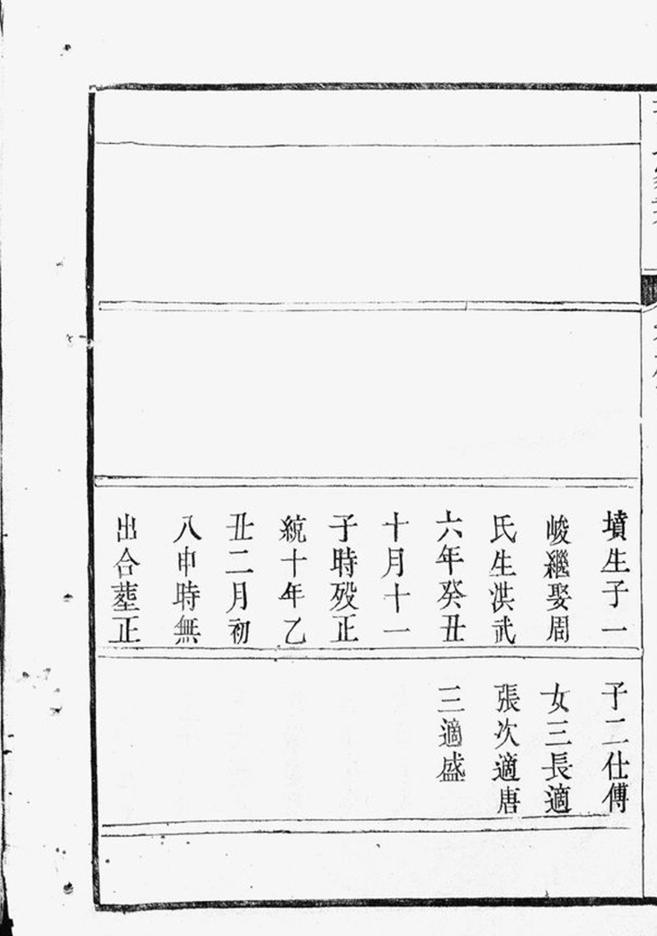 墳生子一
峻繼娶周
氏生洪武
六年癸丑
十月十一
子時殁正
統十年乙
丑二月初
八申時無
出合塟正
子二仕傅
女三長適
張次適唐
三適盛